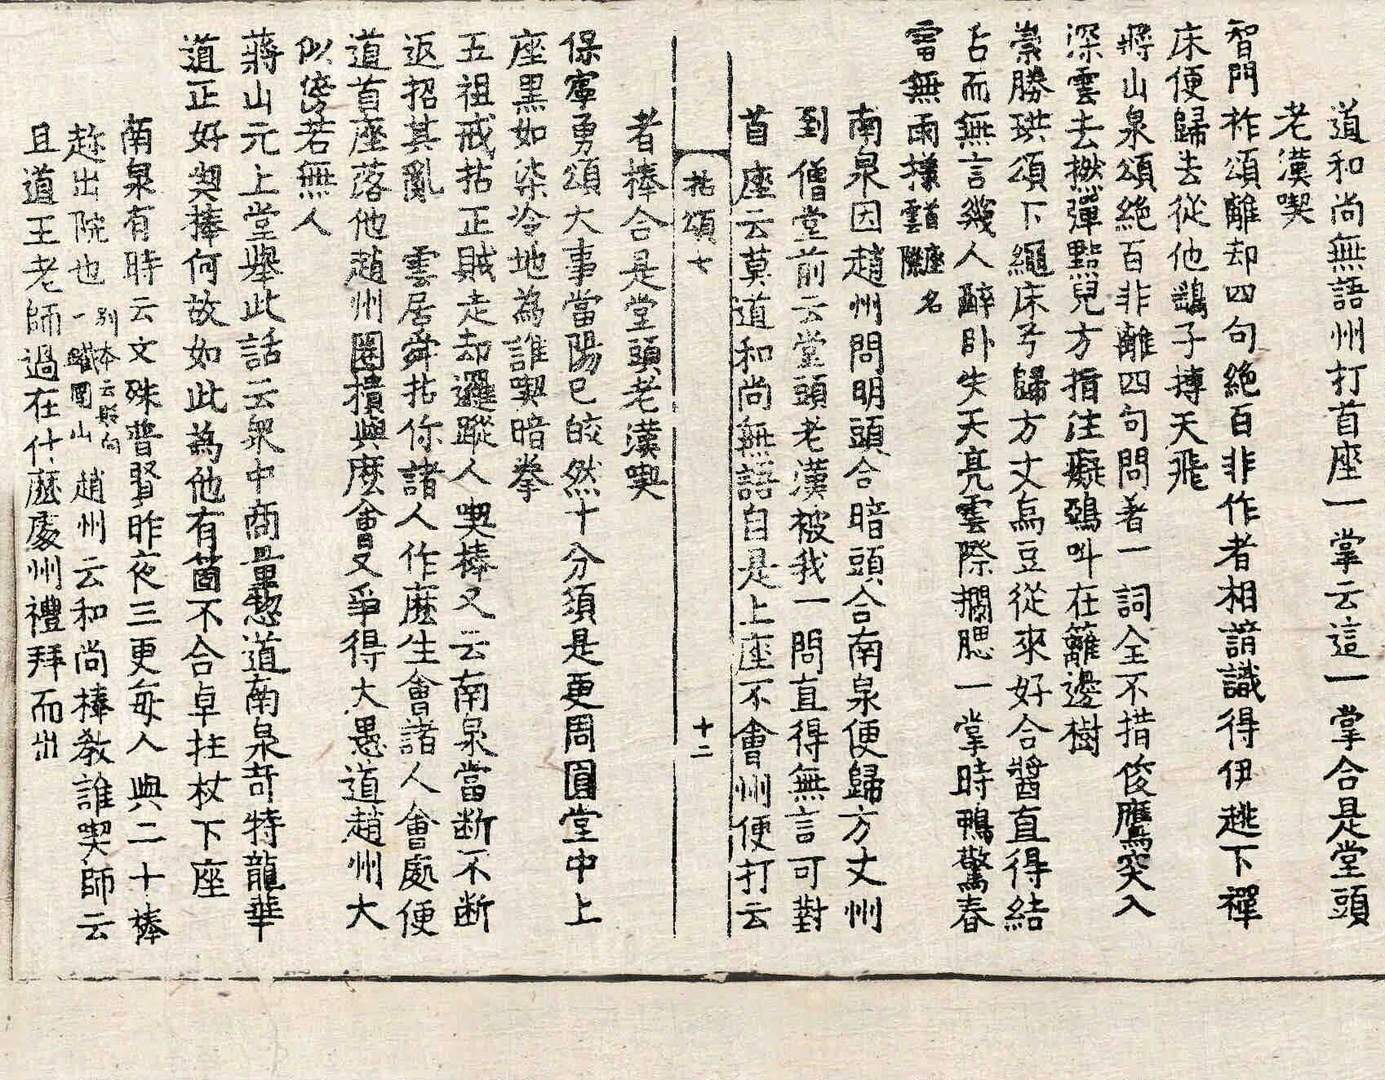 道和尚無語州打首座一掌云這一掌合是堂頭
老漢喫
智門祚頌離却四句絶百非作者相諳識得伊趒下禪
床便歸去從他鷂子摶天飛
蔣山泉頌絶百非離四句問著一詞全不措俊鷹突入
深雲去撚彈黠兒方指注癡鵶叫在籬邊樹
崇勝珙頌下繩床予歸方丈烏豆從來好合醬直得結
舌而無言幾人醉卧失天亮雲際攔腮一掌時鴨驚春
雷無雨㨾雲際首座名
南泉因趙州問明頭合暗頭合南泉便歸方丈州
到僧堂前云堂頭老漢被我一問直得無言可對
首座云莫道和尚無語自是上座不會州便打云
拈頌七 十二
者棒合是堂頭老漢喫
保寧勇頌大事當陽已皎然十分須是更周圓堂中上
座黑如柒冷地為誰喫暗拳
五祖戒拈正賊走却邏蹤人喫棒又云南泉當断不断
返招其亂 雲居舜拈你諸人作麽生會諸人會處便
道首座落他趙州圈樻與麽會又爭得大愚道趙州大
似傍若無人
蔣山元上堂舉此話云衆中商量惣道南泉竒特龍華
道正好喫捧何故如此為他有箇不合卓拄杖下座
南泉有時云文殊普賢昨夜三更每人與二十棒
趂出院也別本云貶向二鐵圍山 趙州云和尚棒教誰喫師云
且道王老師過在什麽處州禮拜而出